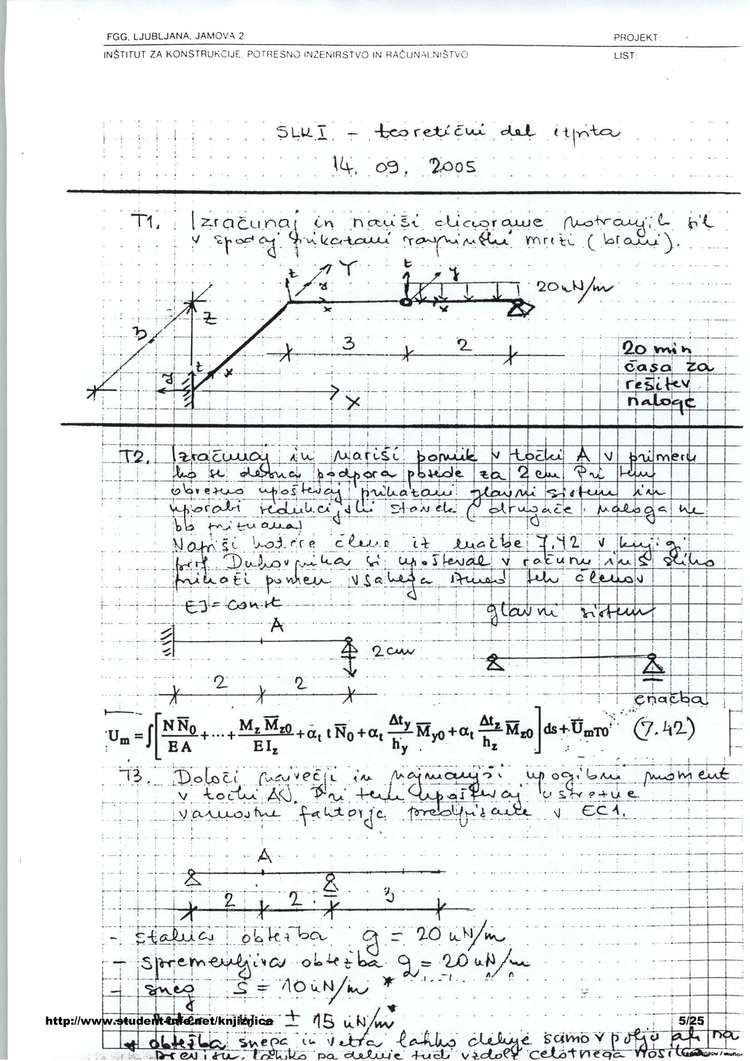 FGG, LJUBLJANA, JAMOVA 2
PROJEKT:
INŠTITUT ZA KONSTRUKCIJE, POTRESNO INŽENIRSTVO IN RAČUNALNIŠTVO
LIST:
SLK I – teoretični del izpita
14. 09. 2005
T1. Izračunaj in nariši diagrame notranjih sil
v spodaj prikazani ravninski mreži (brani).
z Y
y
x
z y
x
20 kN/m
3
Z
3 2
20 min
časa za
rešitev
naloge
y z x
X
T2. Izračunaj in nariši pomik v točki A v primeru
ko se desna podpora posede za 2 cm. Pri tem
obvezno upoštevaj prikazani glavni sistem in
uporabi redukcijski stavek (drugače naloga ne
bo priznana)
Napiši katere člene iz enačbe 7.42 v knjigi
prof. Duhovnika si upošteval v računu in s sliko
prikaži pomen vsakega izmed teh členov
EJ = const
glavni sistem
A
2 cm
2 2
enačba
U̅m = ∫[N N̅0/EA + ... + Mz M̅z0/EIz + αt t N̅0 + αt Δty/hy M̅y0 + αt Δtz/hz M̅z0] ds + U̅mT0 (7.42)
T3. Določi največji in najmanjši upogibni moment
v točki A. Pri tem upoštevaj ustrezne
varnostne faktorje predpisane v EC1.
A
2 2 3
- stalna obtežba g = 20 kN/m
- spremenljiva obtežba q = 20 kN/m
- sneg S = 10 kN/m *
http://www.student-info.net/knjiznica
± 15 kN/m *
5/25
* obtežba snega in vetra lahko deluje samo v polju ali na
previsu, lahko pa deluje tudi vzdolž celotnega nosilca